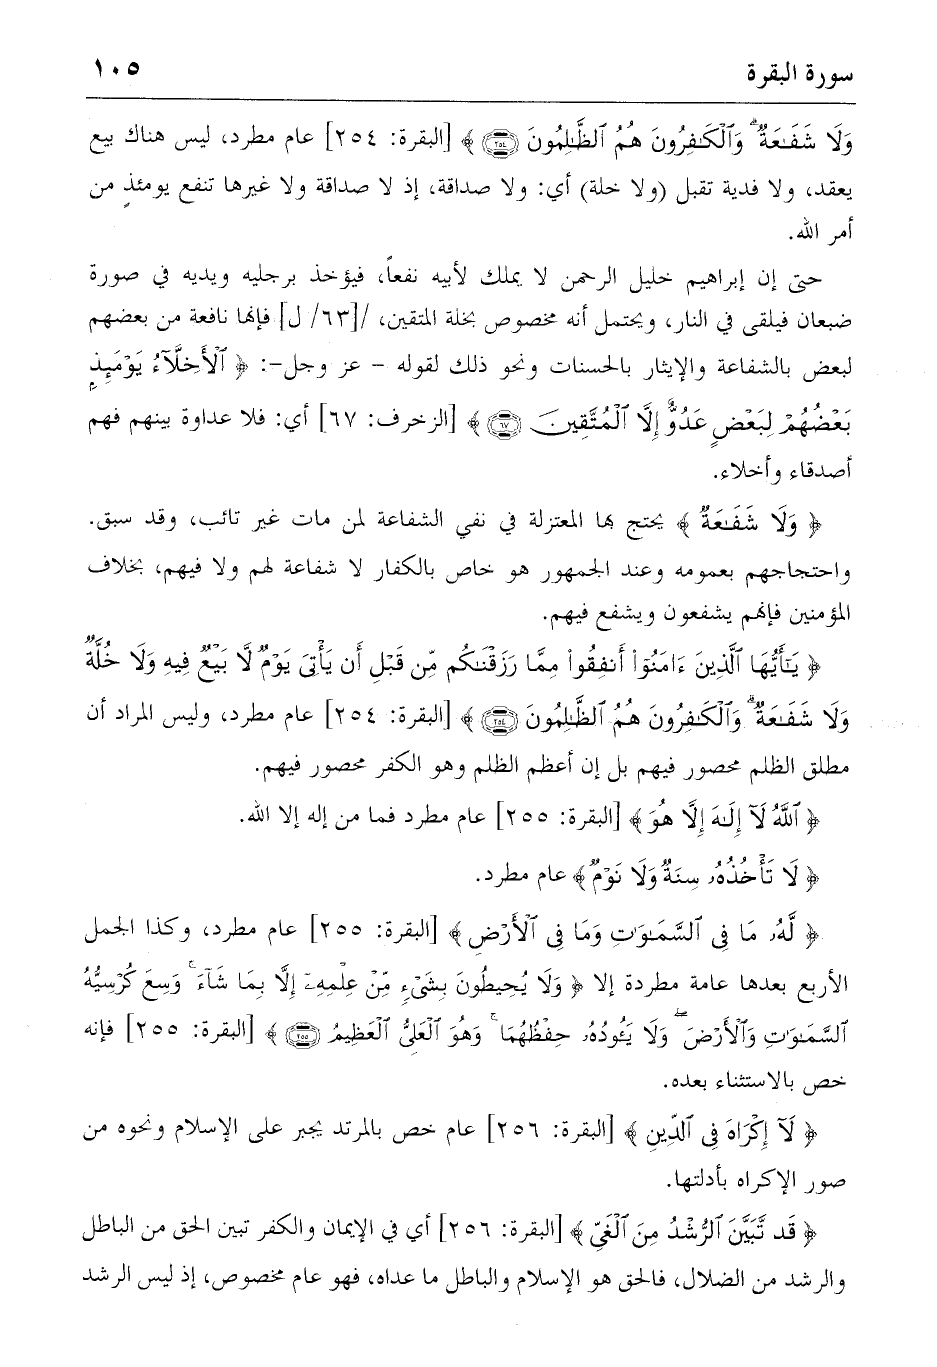 سورة البقرة ١٠٥
وَلَا شَفَٰعَةٌ ۗ وَٱلْكَٰفِرُونَ هُمُ ٱلظَّٰلِمُونَ ﴿٢٥٤﴾ ﴾ [البقرة: ٢٥٤] عام مطرد، ليس هناك بيع
يعقد، ولا فدية تقبل (ولا خلة) أي: ولا صداقة، إذ لا صداقة ولا غيرها تنفع يومئذٍ من
أمر الله.
حتى إن إبراهيم خليل الرحمن لا يملك لأبيه نفعاً، فيؤخذ برجليه ويديه في صورة
ضبعان فيلقى في النار، ويحتمل أنه مخصوص بخلة المتقين، /[٦٣/ ل] فإنها نافعة من بعضهم
لبعض بالشفاعة والإيثار بالحسنات ونحو ذلك لقوله - عز وجل-: ﴿ ٱلْأَخِلَّآءُ يَوْمَئِذٍۭ
بَعْضُهُمْ لِبَعْضٍ عَدُوٌّ إِلَّا ٱلْمُتَّقِينَ ﴿٦٧﴾ ﴾ [الزخرف: ٦٧] أي: فلا عداوة بينهم فهم
أصدقاء وأخلاء.
﴿ وَلَا شَفَٰعَةٌ ﴾ يحتج بها المعتزلة في نفي الشفاعة لمن مات غير تائب، وقد سبق.
واحتجاجهم بعمومه وعند الجمهور هو خاص بالكفار لا شفاعة لهم ولا فيهم، بخلاف
المؤمنين فإنهم يشفعون ويشفع فيهم.
﴿ يَٰٓأَيُّهَا ٱلَّذِينَ ءَامَنُوٓا۟ أَنفِقُوا۟ مِمَّا رَزَقْنَٰكُم مِّن قَبْلِ أَن يَأْتِىَ يَوْمٌ لَّا بَيْعٌ فِيهِ وَلَا خُلَّةٌ
وَلَا شَفَٰعَةٌ ۗ وَٱلْكَٰفِرُونَ هُمُ ٱلظَّٰلِمُونَ ﴿٢٥٤﴾ ﴾ [البقرة: ٢٥٤] عام مطرد، وليس المراد أن
مطلق الظلم محصور فيهم بل إن أعظم الظلم وهو الكفر محصور فيهم.
﴿ ٱللَّهُ لَآ إِلَٰهَ إِلَّا هُوَ ﴾ [البقرة: ٢٥٥] عام مطرد فما من إله إلا الله.
﴿ لَا تَأْخُذُهُۥ سِنَةٌ وَلَا نَوْمٌ ﴾ عام مطرد.
﴿ لَّهُۥ مَا فِى ٱلسَّمَٰوَٰتِ وَمَا فِى ٱلْأَرْضِ ﴾ [البقرة: ٢٥٥] عام مطرد، وكذا الجمل
الأربع بعدها عامة مطردة إلا ﴿ وَلَا يُحِيطُونَ بِشَىْءٍ مِّنْ عِلْمِهِۦٓ إِلَّا بِمَا شَآءَ ۚ وَسِعَ كُرْسِيُّهُ
ٱلسَّمَٰوَٰتِ وَٱلْأَرْضَ ۖ وَلَا يَـُٔودُهُۥ حِفْظُهُمَا ۚ وَهُوَ ٱلْعَلِىُّ ٱلْعَظِيمُ ﴿٢٥٥﴾ ﴾ [البقرة: ٢٥٥] فإنه
خص بالاستثناء بعده.
﴿ لَآ إِكْرَاهَ فِى ٱلدِّينِ ﴾ [البقرة: ٢٥٦] عام خص بالمرتد يجبر على الإسلام ونحوه من
صور الإكراه بأدلتها.
﴿ قَد تَّبَيَّنَ ٱلرُّشْدُ مِنَ ٱلْغَىِّ ﴾ [البقرة: ٢٥٦] أي في الإيمان والكفر تبين الحق من الباطل
والرشد من الضلال، فالحق هو الإسلام والباطل ما عداه، فهو عام مخصوص، إذ ليس الرشد